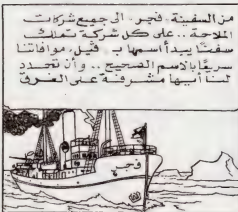 من السفينة "فجر" الى جميع شركات
الملاحة .. على كل شركة تملك
سفينة يبدأ أسمها بـ "ڤيل" موافاتنا
سريعًا بالاسم الصحيح .. وأن تحدد
لنا أيها مشرفة على الغرق
فجر